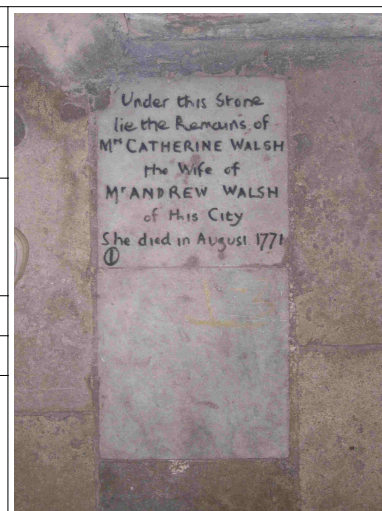 Under this Stone
lie the Remains of
Mrs CATHERINE WALSH
the Wife of
Mr ANDREW WALSH
of this City
She died in August 1771
①